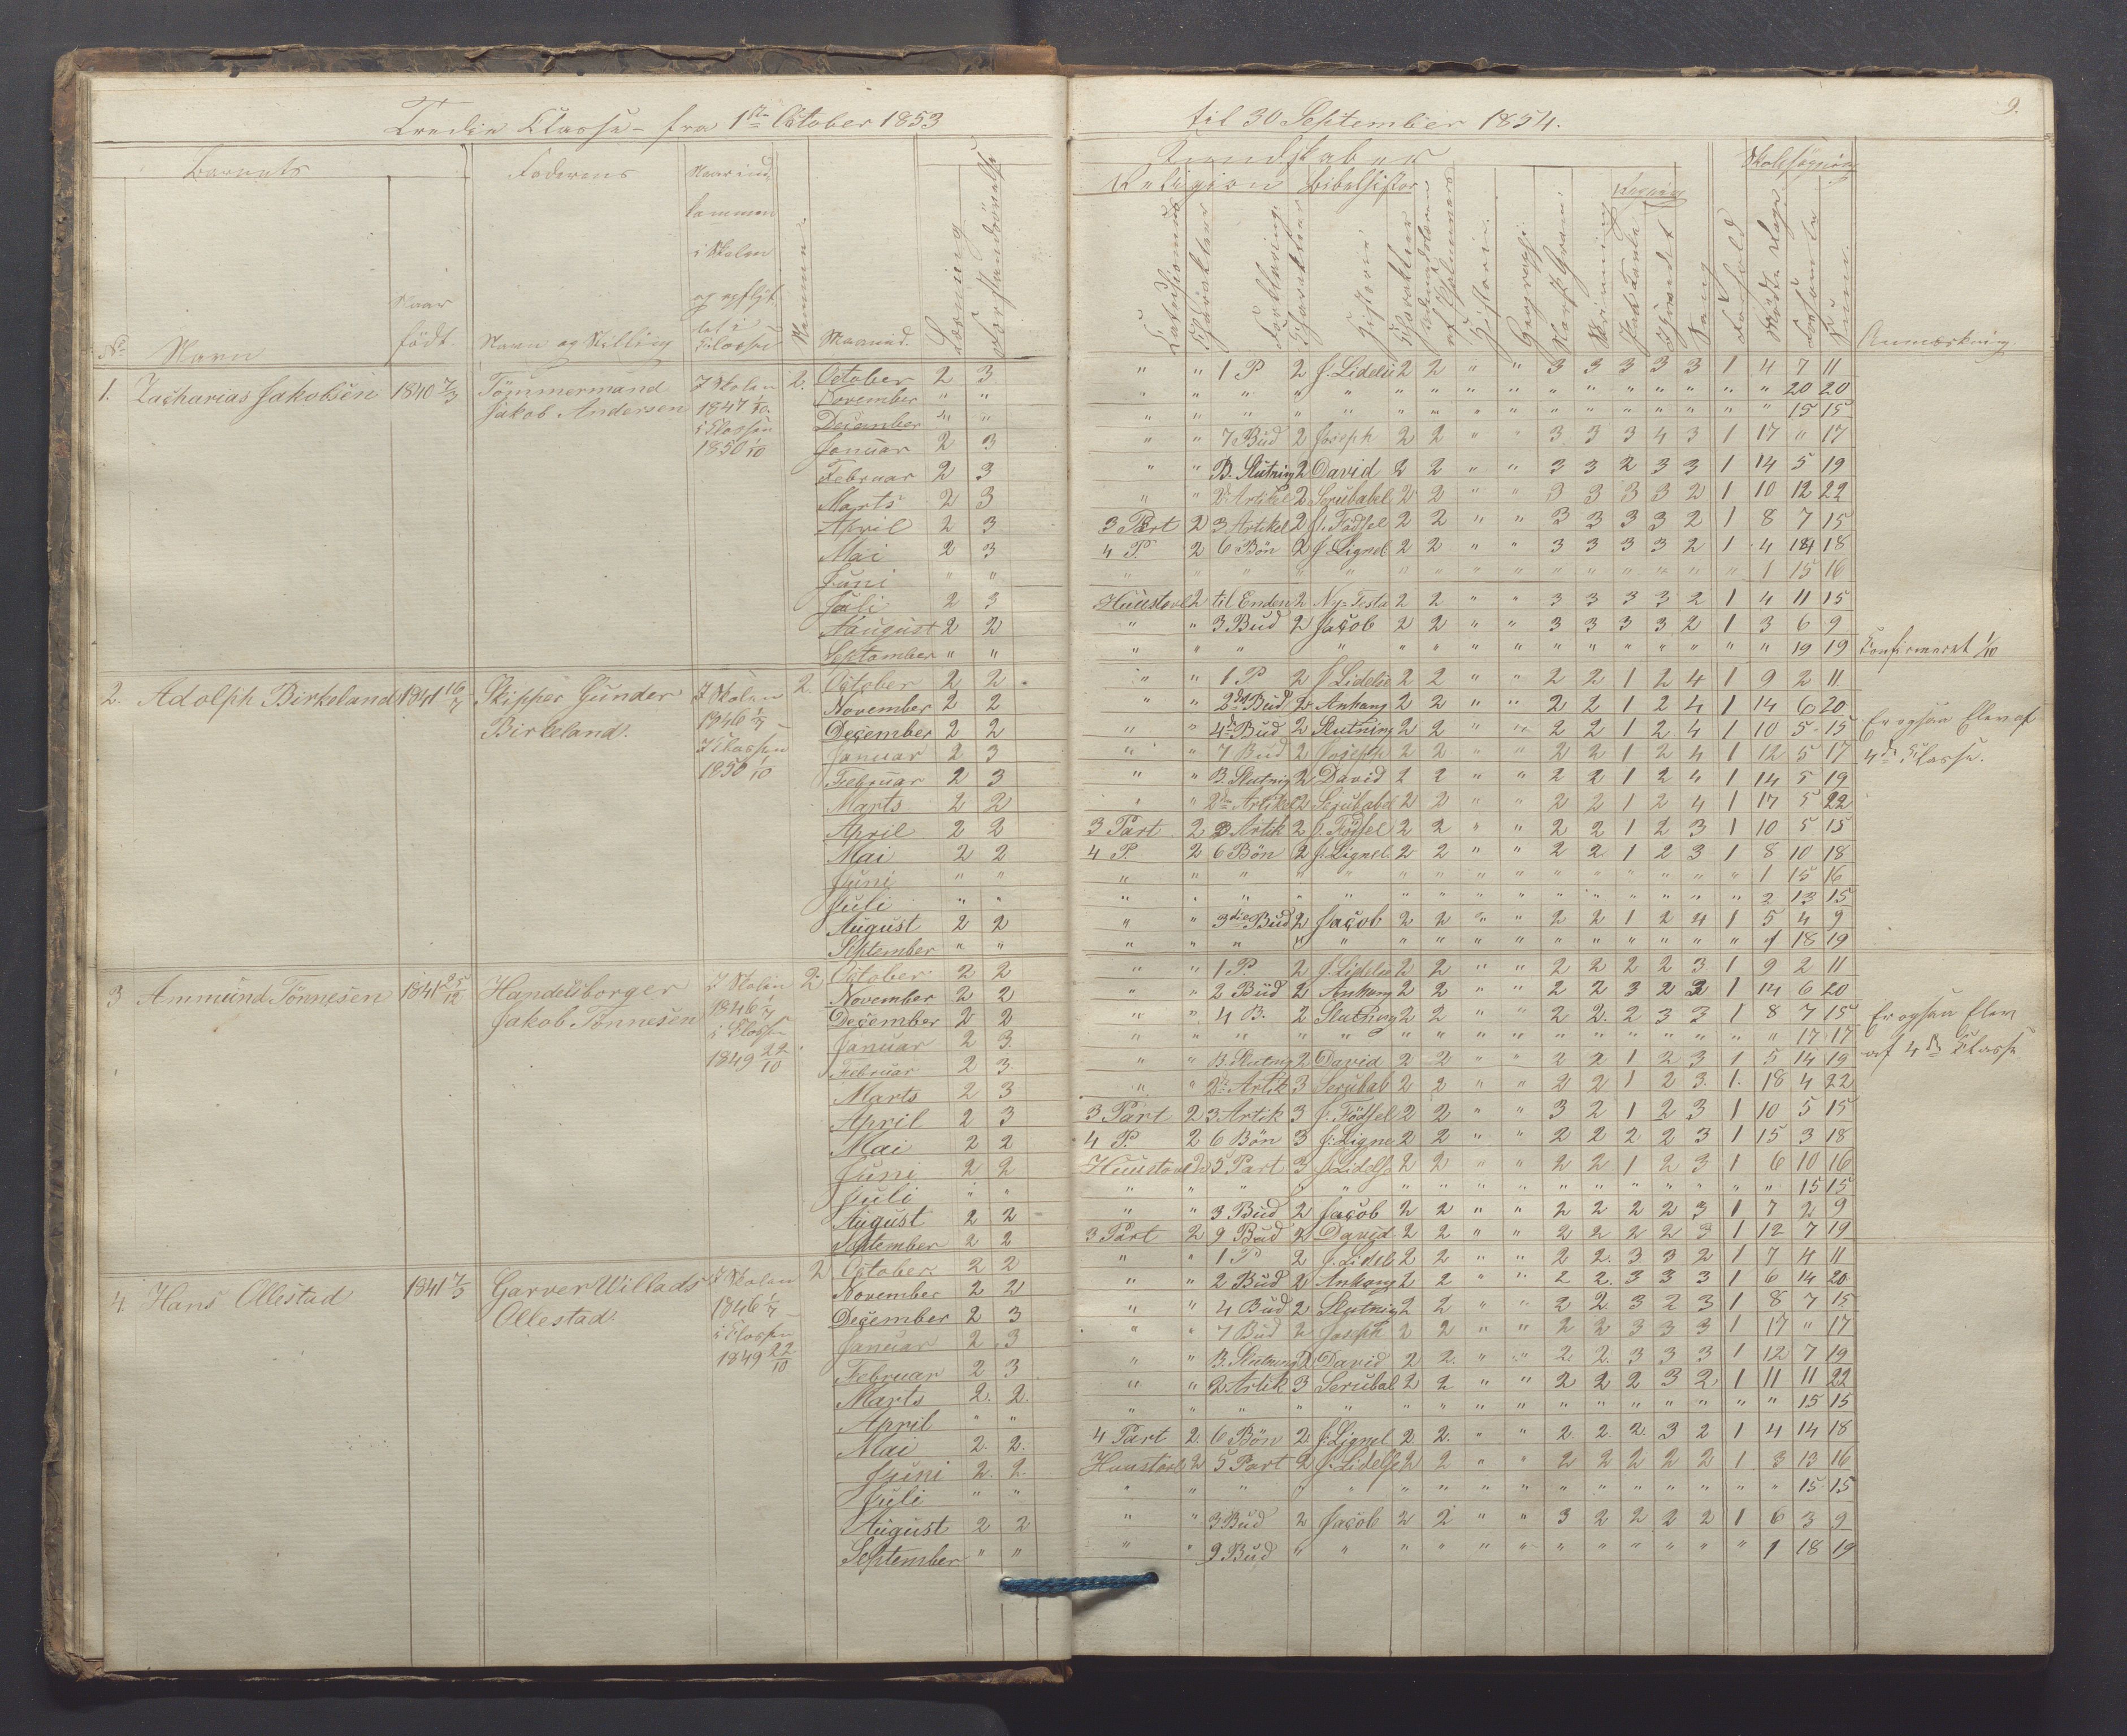 Tredie Classe – fra 1ste October 1853 til 30 September 1854.
9.
Barnets
Nr
Navn
Naar
født.
Faderens
Navn og Stilling
Naar ind-
kommen
i Skolen
og opflyt-
tet i
Classen
Nummer.
Maaned.
Læsning
Forstandsøvelse
Kundskaber
Religion
Bibelhistor
Catechismus
Charakteer
Forklaring.
Charakteer
Historie.
Charakteer
Historie.
Geographi
Skrivning
Regning
Paa Tavle
Hovedet
Sang
Forhold
Skolesøgning
Mødte Dage
Forsømte
Sum.
Anmærkning.
1. Zacharias Jakobsen 1840 7/3 Tömmermand Jakob Andersen I Skolen 1847 1/10. i Classen 1850 1/10 2.
October 2 3 " " 1 P 2 J: Lidelse 2 2 " " 3 3 3 3 3 1 4 7 11
November " " " " " " " " " " " " " " " " " " 20 20
December " " " " " " " " " " " " " " " " " " 15 15
Januar 2 3 " " 7 Bud 2 Joseph 2 2 " " 3 3 3 4 3 1 17 " 17
Februar 2 3 " " B. Slutning 2 David 2 2 " " 3 3 2 3 3 1 14 5 19
Marts 2 3 " " 2 Artikel 2 Serubabel 2 2 " " 3 3 3 3 2 1 10 12 22
April 2 3 3 Part 2 3 Artikel 2 J. Fødsel 2 2 " " 3 3 3 3 2 1 8 7 15
Mai 2 3 4 P. 2 6 Bön 2 J. Lignel 2 2 " " 3 3 3 3 2 1 4 14 18
Juni " " " " " " " " " " " " " " " " " 1 15 16
Juli 2 3 Huustavl 2 til Enden 2 Ny-Testa 2 2 " " 3 3 3 3 2 1 4 11 15
August 2 2 " " 3 Bud 2 Jacob 2 2 " " 3 3 3 3 2 1 3 6 9
September " " " " " " " " " " " " " " " " " 19 19 Confirmeret 1/10
2. Adolph Birkeland 1841 16/7 Skipper Gunder Birkeland. I Skolen 1846 1/7 – I Classen 1850 1/10 2.
October 2 2 " " 1 P. 2 J Lidelse 2 2 " " 2 2 1 2 4 1 9 2 11
November 2 2 " " 2det Bud 2 Anhang 2 2 " " 2 2 1 2 4 1 14 6 20
December 2 2 " " 4de Bud 2 Slutning 2 2 " " 2 2 1 2 4 1 10 5 15
Januar 2 3 " " 7 Bud 2 Joseph 2 2 " " 2 2 1 2 4 1 12 5 17
Er ogsaa Elev af
4de Classe.
Februar 2 3 " " B. Slutnig 2 David 2 2 " " 2 2 1 2 4 1 14 5 19
Marts 2 2 " " 2den Artikel 2 Serubabel 2 2 " " 2 2 1 2 4 1 17 5 22
April 2 2 3 Part 2 3 Artik 2 J. Födsel 2 2 " " 2 2 1 2 3 1 10 5 15
Mai 2 2 4 P. 2 6 Bön 2 J. Lignel. 2 2 " " 2 2 1 2 3 1 8 10 18
Juni " " " " " " " " " " " " " " " " " 1 15 16
Juli " " " " " " " " " " " " " " " " " 2 13 15
August 2 2 " " 3die Bud 2 Jacob 2 2 " " 2 2 1 2 4 1 5 4 9
September " " " " " " " " " " " " " " " " " 1 18 19
3 Ammund Tönnesen 1841 25/12 Handelsborger Jakob Tönnesen I Skolen 1846 1/7 i Classen 1849 22/10 2
October 2 2 " " 1 P. 2 J. Lidelse 2 2 " " 2 2 2 2 3 1 9 2 11
November 2 2 " " 2 Bud 2 Anhang 2 2 " " 2 2 3 2 2 1 14 6 20
December 2 2 " " 4 B. 2 Slutning 2 2 " " 2 2 2 3 3 1 8 7 15
Januar 2 3 " " " " " " " " " " " " " " " " 17 17
Er ogsaa Elev
af 4de Classe
Februar 2 3 " " B. Slutnig 2 David 2 2 " " 2 2 1 2 3 1 5 14 19
Marts 2 3 " " 2den Artik 3 Serubab 2 2 " " 2 2 1 2 3 1. 18 4 22
April 2 3 3 Part 2 3 Artik 3 J. Födsel 2 2 " " 3 2 1 2 3 1 10 5 15
Mai 2 2 4 P. 2 6 Bön 3 J: Ligne 2 2 " " 2 2 2 2 3 1 15 3 18
Juni 2 2 Huustavl 2 5 Part 3 J Lidelse 2 2 " " 2 2 1 2 3 1 6 10 16
Juli " " " " " " " " " " " " " " " " " " 15 15
August 2 2 " " 3 Bud 2 Jacob 2 2 " " 2 2 2 2 3 1 7 2 9
September 2 2 3 Part 2 9 Bud 2 David 2 2 " " 2 2 2 2 3 1 12 7 19
4. Hans Ollestad 1841 7/5 Garver Willads Ollestad. I Skolen 1846 1/7 – i Classen 1849 22/10 2
October 2 2 " " 1 P 2 J. Lidel 2 2 " " 2 2. 3 3 2 1 7 4 11
November 2 2 " " 2 Bud 2 Anhang 2 2 " " 2 2. 3 3 3 1 6 14 20
December 2 3 " " 4 Bud 2 Slutnig 2 2 " " 2 2 3 2 3 1 8 7 15
Januar 2 3 " " 7 Bud 2 Joseph 2 2 " " 2 2 3 3 3 1 17 " 17
Februar 2 3 " " B. Slutning 2 David 2 2. " " 2. 2. 3 3 3 1 12 7 19
Marts 2. 2. " " 2 Artik 3 Serubal 2 2 " " 2 2 2 3 2 1 11 11 22
April " " " " " " " " " " " " " " " " " " 15 15
Mai 2. 2. 4 Part 2. 6 Bön 2. J. Lignel 2 2. " " 2. 2. 2. 3 2 1 4 14 18
Juni 2. 2. Huustavl 2 5 Part 2 J. Lidelse 2 2 " " 2 2 2 2 2 1 3 13 16
Juli " " " " " " " " " " " " " " " " " " 15 15
August 2 2 " " 3 Bud 2 Jacob 2 2 " " 3 2 2 2 2 1 6 3 9
September " " " " 9 Bud " " " " " " " " " " " " 1 18 19